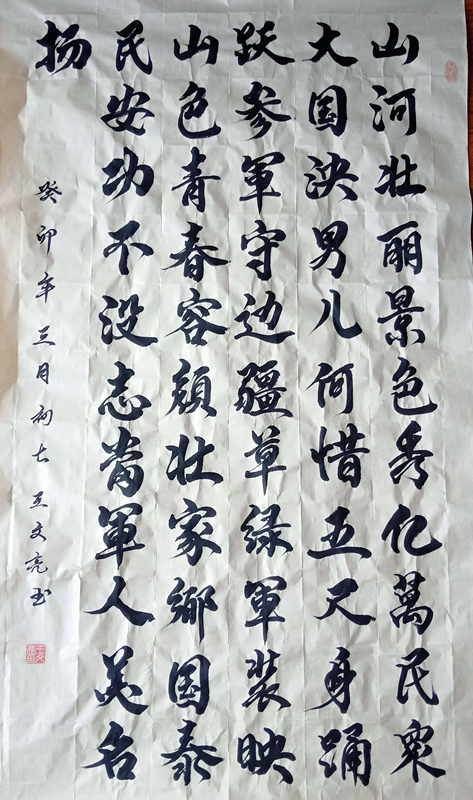 山河壮丽景色秀亿萬民衆
大国泱男儿何惜五尺身踊
跃参軍守边疆草绿軍装映
山色青春容颜壮家鄉国泰
民安功不没志當軍人美名
扬
癸卯年三月初七王文亮书